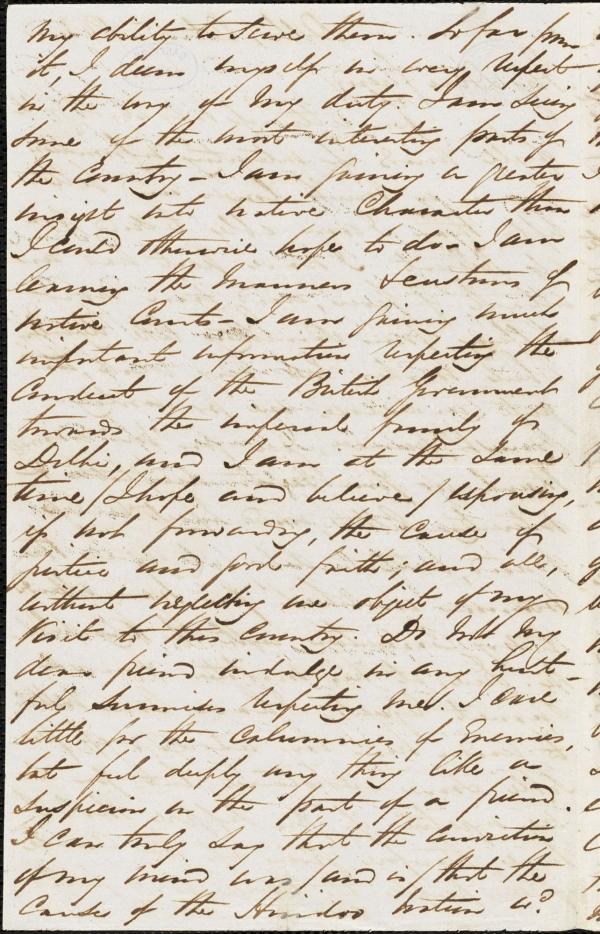 my ability to serve them. So far from
it, I deem myself in every respect
in the way of my duty. I am seeing
some of the most interesting parts of
the Country – I am gaining a greater
insight into native Character than
I could otherwise hope to do – I am
learning the manners & customs of
native Courts – I am gaining much
important information respecting the
conduct of the British Government
towards the imperial family of
Delhi, and I am at the same
time / I hope and believe / espousing,
if not forwarding, the cause of
justice and good faith; and all,
without neglecting one object of my
visit to this Country. Do not my
dear friend indulge in any hurt-
ful surmises respecting me. I care
little for the calumnies of Enemies,
but feel deeply any thing like a
suspicion on the part of a friend.
I can truly say that the conviction
of my mind was / and is / that the
cause of the Hindoo nation wd.